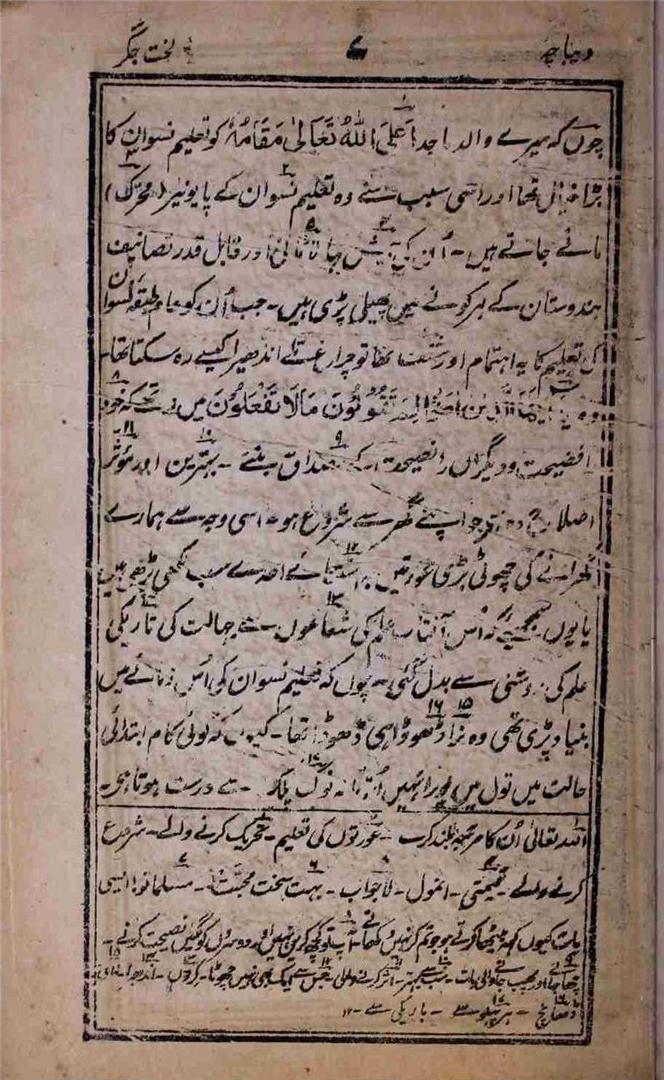 دیباچہ ۷ لخت جگر
چوں کہ میرے والد ماجد اَعلَیَ اللهُ تَعَالیٰ مَقَامَہٗ کو تعلیم نسواں کا
بڑا خیال تھا اور اسی سبب سے وہ تعلیم نسواں کے پایونیر (محرک)
مانے جاتے ہیں۔ اُن کی بیش بہا لاثانی اور قابل قدر تصانیف
ہندوستان کے ہر کونے میں پھیلی پڑی ہیں۔ جب اُن کو عام طبقہ نسواں
کی تعلیم کا یہ اہتمام اور شغف تھا تو چراغ تلے اندھیرا کیسے رہ سکتا تھا۔
وہ تَقُوْلُوْنَ مَالَا تَفْعَلُوْنَ میں نہ تھے کہ خود
را فضیحت و دیگراں را نصیحت کے مصداق بنتے۔ بہترین اور مؤثر
اصلاح وہ ہے جو اپنے گھر سے شروع ہو۔ اسی وجہ سے ہمارے
گھرانے کی چھوٹی بڑی عورتیں سب لکھی پڑھی ہیں
یا یوں سمجھیے کہ اُس آفتاب علم کی شعاعوں سے جہالت کی تاریکی
علم کی روشنی سے بدل گئی۔ چوں کہ تعلیم نسواں کی اُس زمانے میں
بنیاد پڑی تھی وہ نرا ڈھوڈا ہی ڈھوڈا تھا۔ کیوں کہ کوئی کام ابتدائی
حالت میں تول میں پورا نہیں اُترتا نہ نوک پلک سے درست ہوتا ہی۔
اللہ تعالیٰ اُن کا مرتبہ بلند کرے۔ عورتوں کی تعلیم۔ تحریک کرنے والے۔ شروع
کرنے والے۔ قیمتی۔ انمول۔ لاجواب۔ بہت سخت محبت۔ مسلمانو! ایسی
بات کیوں کہہ بیٹھا کرتے ہو جو تم کر نہیں دکھاتے۔ آپ تو کچھ کریں نہیں اور دوسروں کو لگیں نصیحت کرنے۔
والی بات۔ سب سے بہتر۔ اثر کرنے والی۔ جس سے ایک بھی نہیں چھوٹا۔ کرنوں۔
ڈھانچ۔ ہر پہلو سے۔ باریکی سے۔ ۱۲